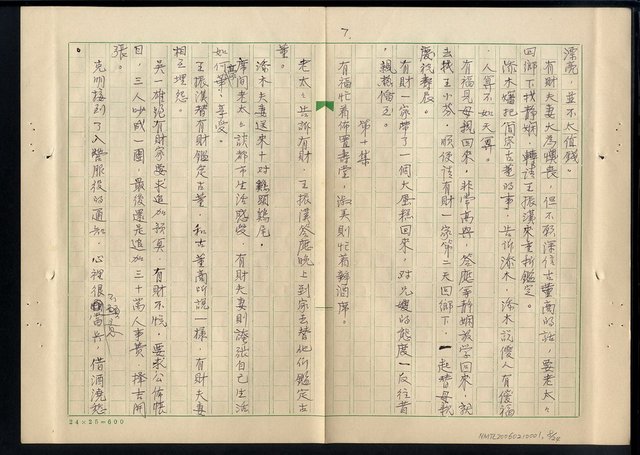 7.
漂亮，並不太值錢。
有財夫妻大為懊喪，但不彩深信古董商的話，要老太太
回鄉下找靜嫻，轉請王振漢來重新鑑定。
添木嬸把簡家古董的事，告訴添木，添木說傻人有傻福
，人算不如天算。
有福見母親回來，非常高興，答應等靜嫻放学回來，就
去找王小芬，順便請有財一家第二天回鄉下，一起替母親
慶祝壽辰。
有財一家帶了一個大蛋糕回來，对兄嫂的態度一反往昔
，親熱倫之。
第十集
有福忙着佈置壽堂，淑美則忙着辦酒席。
老太太告訴有財，王振漢答應晚上到家去替他们鑑定古
董。
添木夫妻送來十对雞頭鷄尾。
席间老太太談都市生活感受，有財夫妻則誇張自己生活
如何高享受。
王振漢替有財鑑定古董，和古董商所說一樣，有財夫妻
相互埋怨。
吳一雄說有財家要求追加預算，有財不悅，要求公佈帳
目，三人吵成一團，最後还是追加三十萬人事費，擇吉開
張。
克明接到了入營服役的通知，心裡很不願意當兵，借酒澆愁
。
24×25=600
NMTL20050210001, 8/24